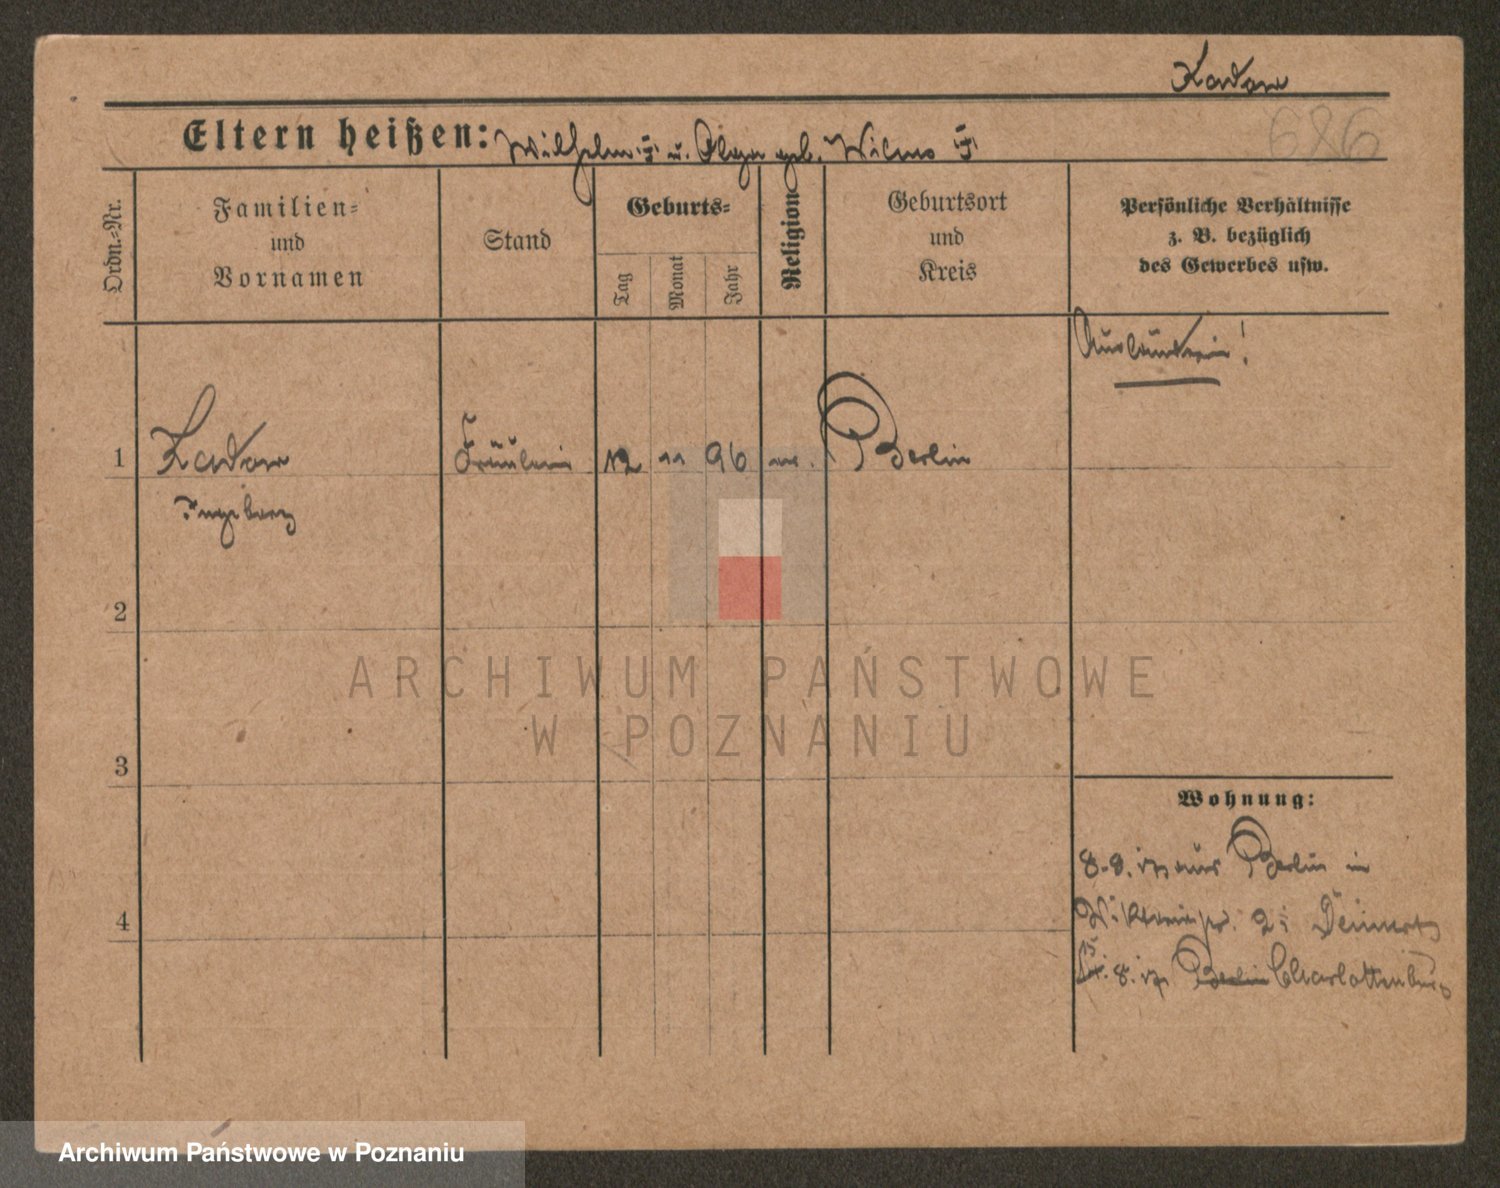 Kadow
Eltern heißen: Wilhelm u. Olga geb.
686
Ordn.-Nr.
Familien-
und
Vornamen
Stand
Geburts-
Tag
Monat
Jahr
Religion
Geburtsort
und
Kreis
Persönliche Verhältnisse
z. B. bezüglich
des Gewerbes usw.
Ausländerin!
1 Kadow Fräulein 12 11 96 ev. Berlin
Ingeborg
2
3
4
Wohnung:
8.8. aus Berlin in
2
8. Berlin Charlottenburg
ARCHIWUM PAŃSTWOWE
W POZNANIU
Archiwum Państwowe w Poznaniu